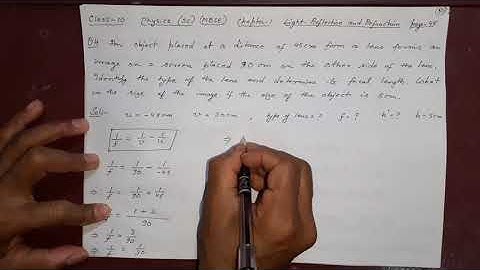 Class-10 Physics (SC) (NBSE) Chapter-1 Light-Reflection and Refraction page-48
Q4 An object placed at a distance of 45cm form a lens forms an
image on a screen placed 90 cm on the other side of the lens.
Identify the type of the lens and determine its focal length. What
is the size of the image if the size of the object is 5cm.
Soln:- u = -45cm v = 90cm, type of lens = ? f = ? h' = ? h = 5cm
1/f = 1/v - 1/u ⇒
1/f = 1/90 - 1/-45
⇒ 1/f = 1/90 + 1/45
= 1 + 2 / 90
⇒ 1/f = 3/90
⇒ 1/f = 1/30